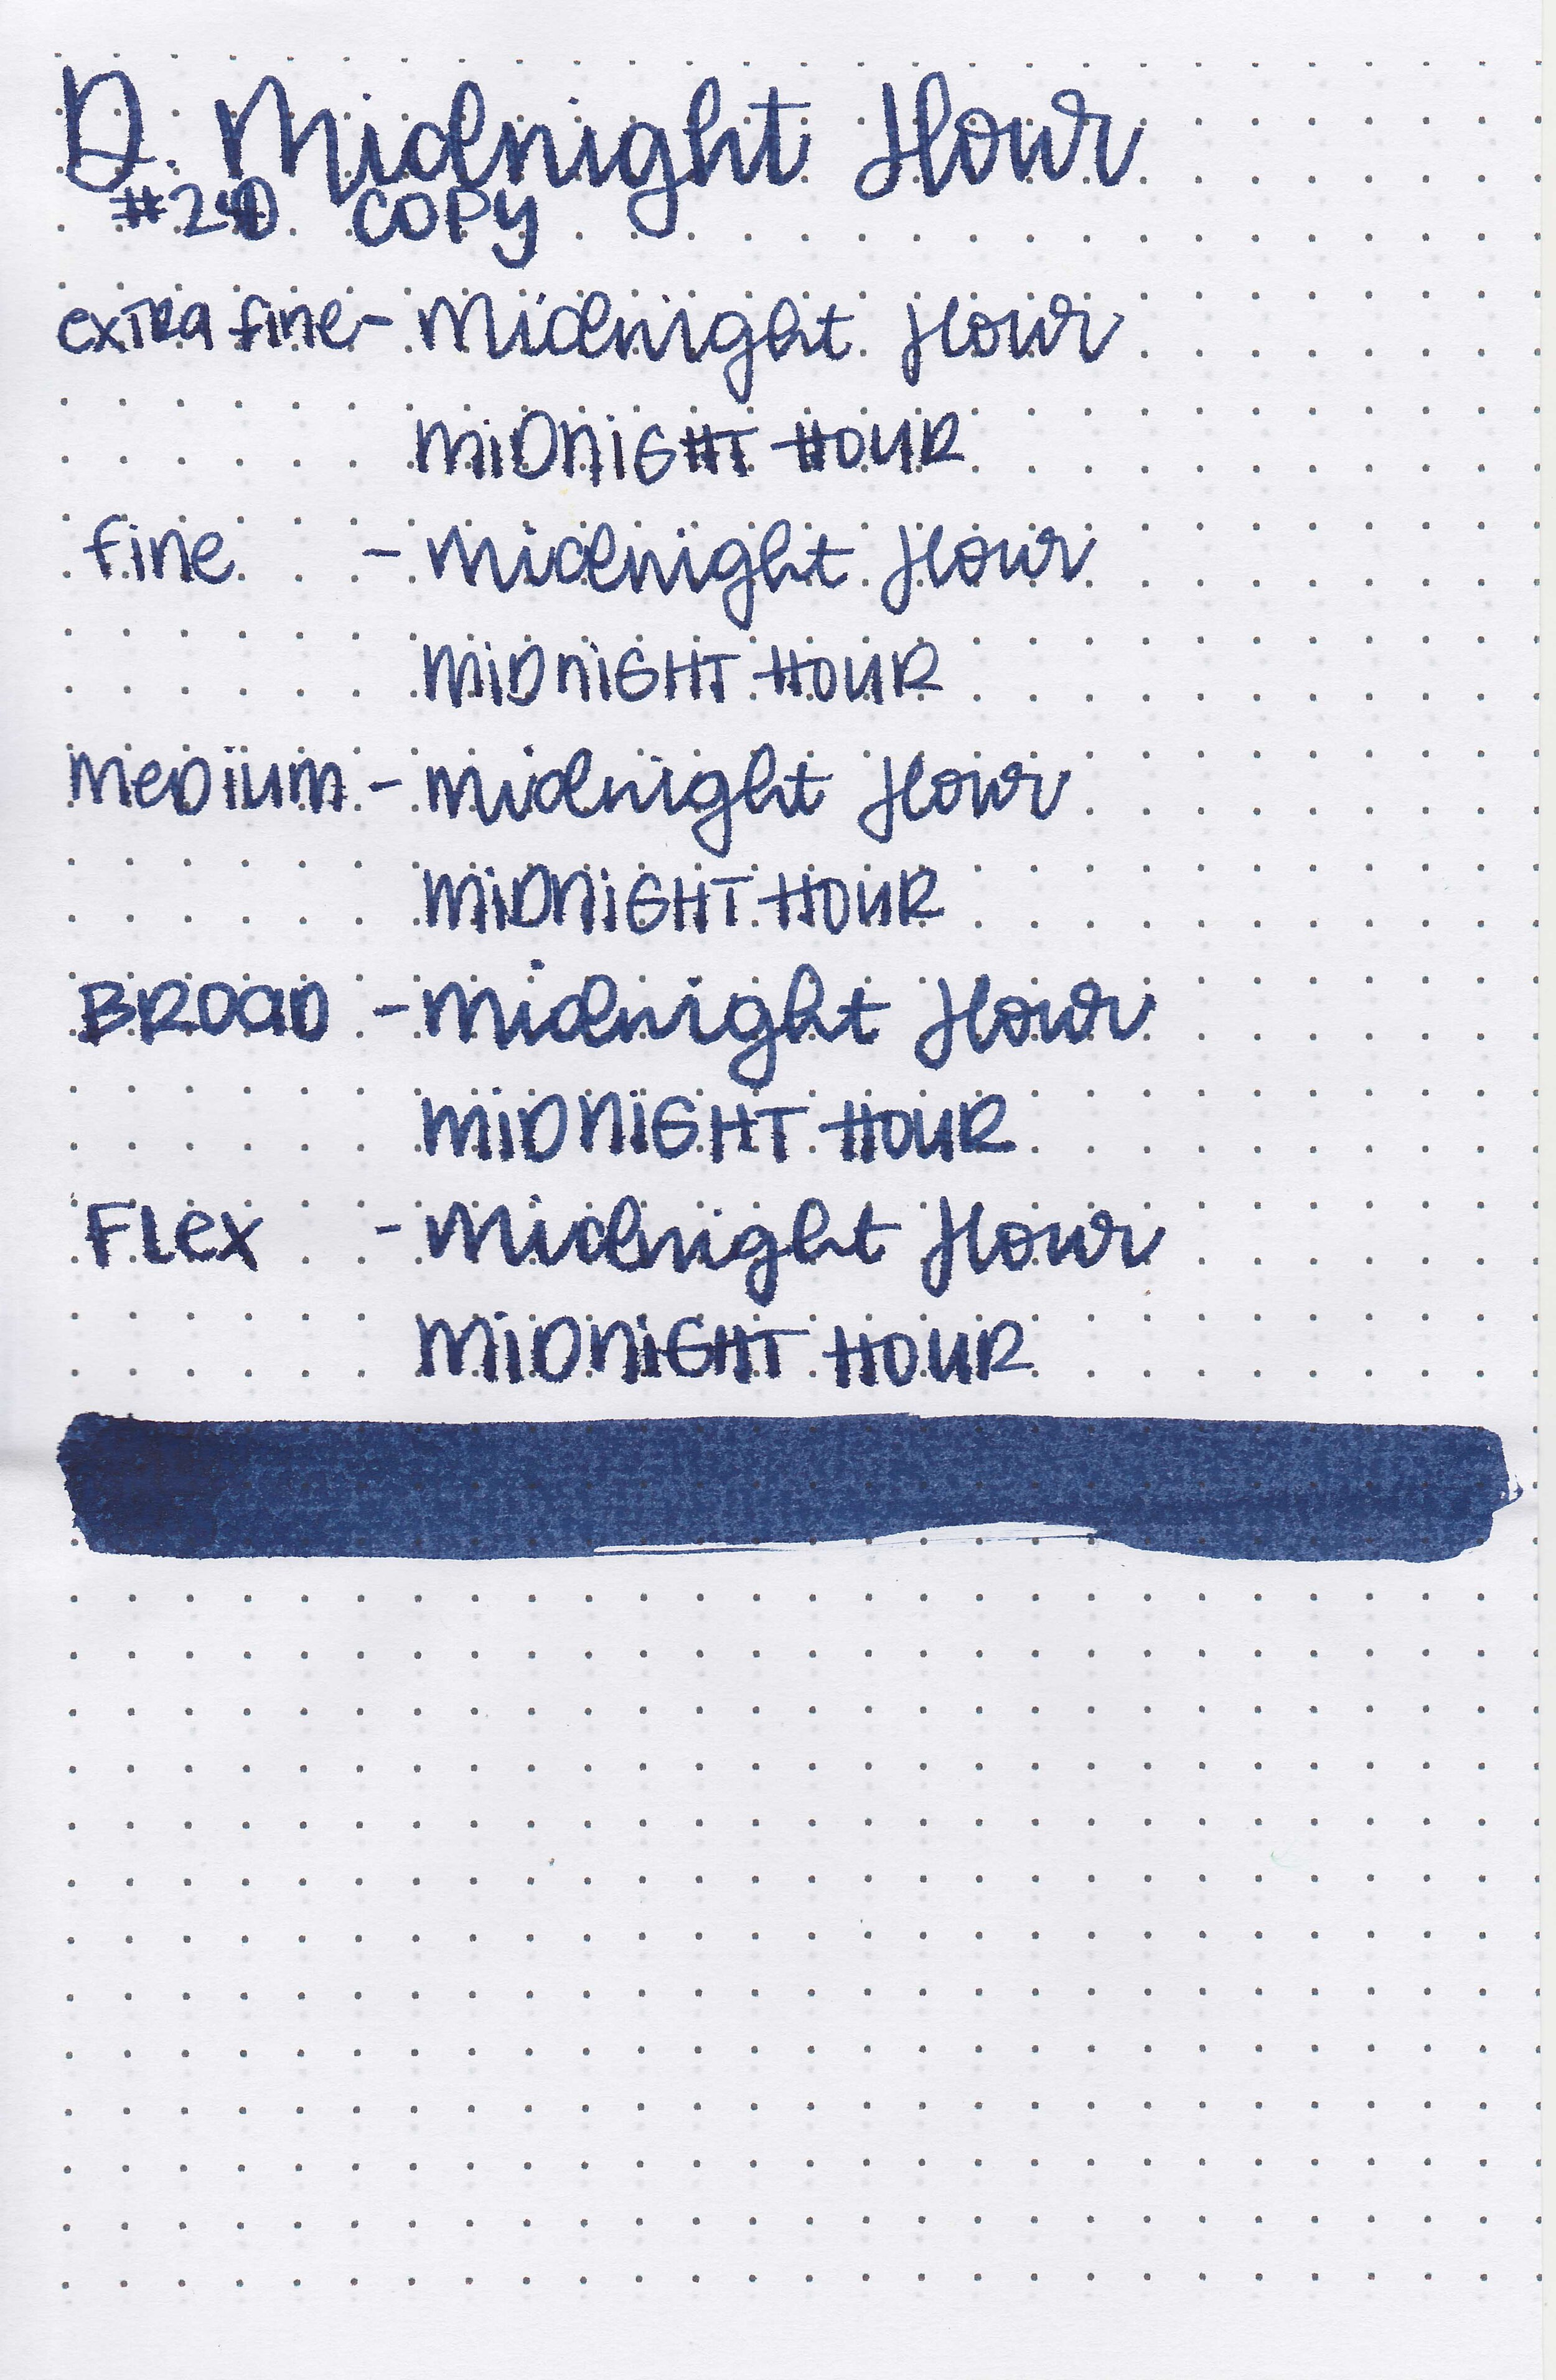 D. Midnight Hour
COPY
extra fine - Midnight Hour
MIDNIGHT HOUR
fine - Midnight Hour
MIDNIGHT HOUR
Medium - Midnight Hour
MIDNIGHT HOUR
BROAD - Midnight Hour
MIDNIGHT HOUR
FLex - Midnight Hour
MIDNIGHT HOUR